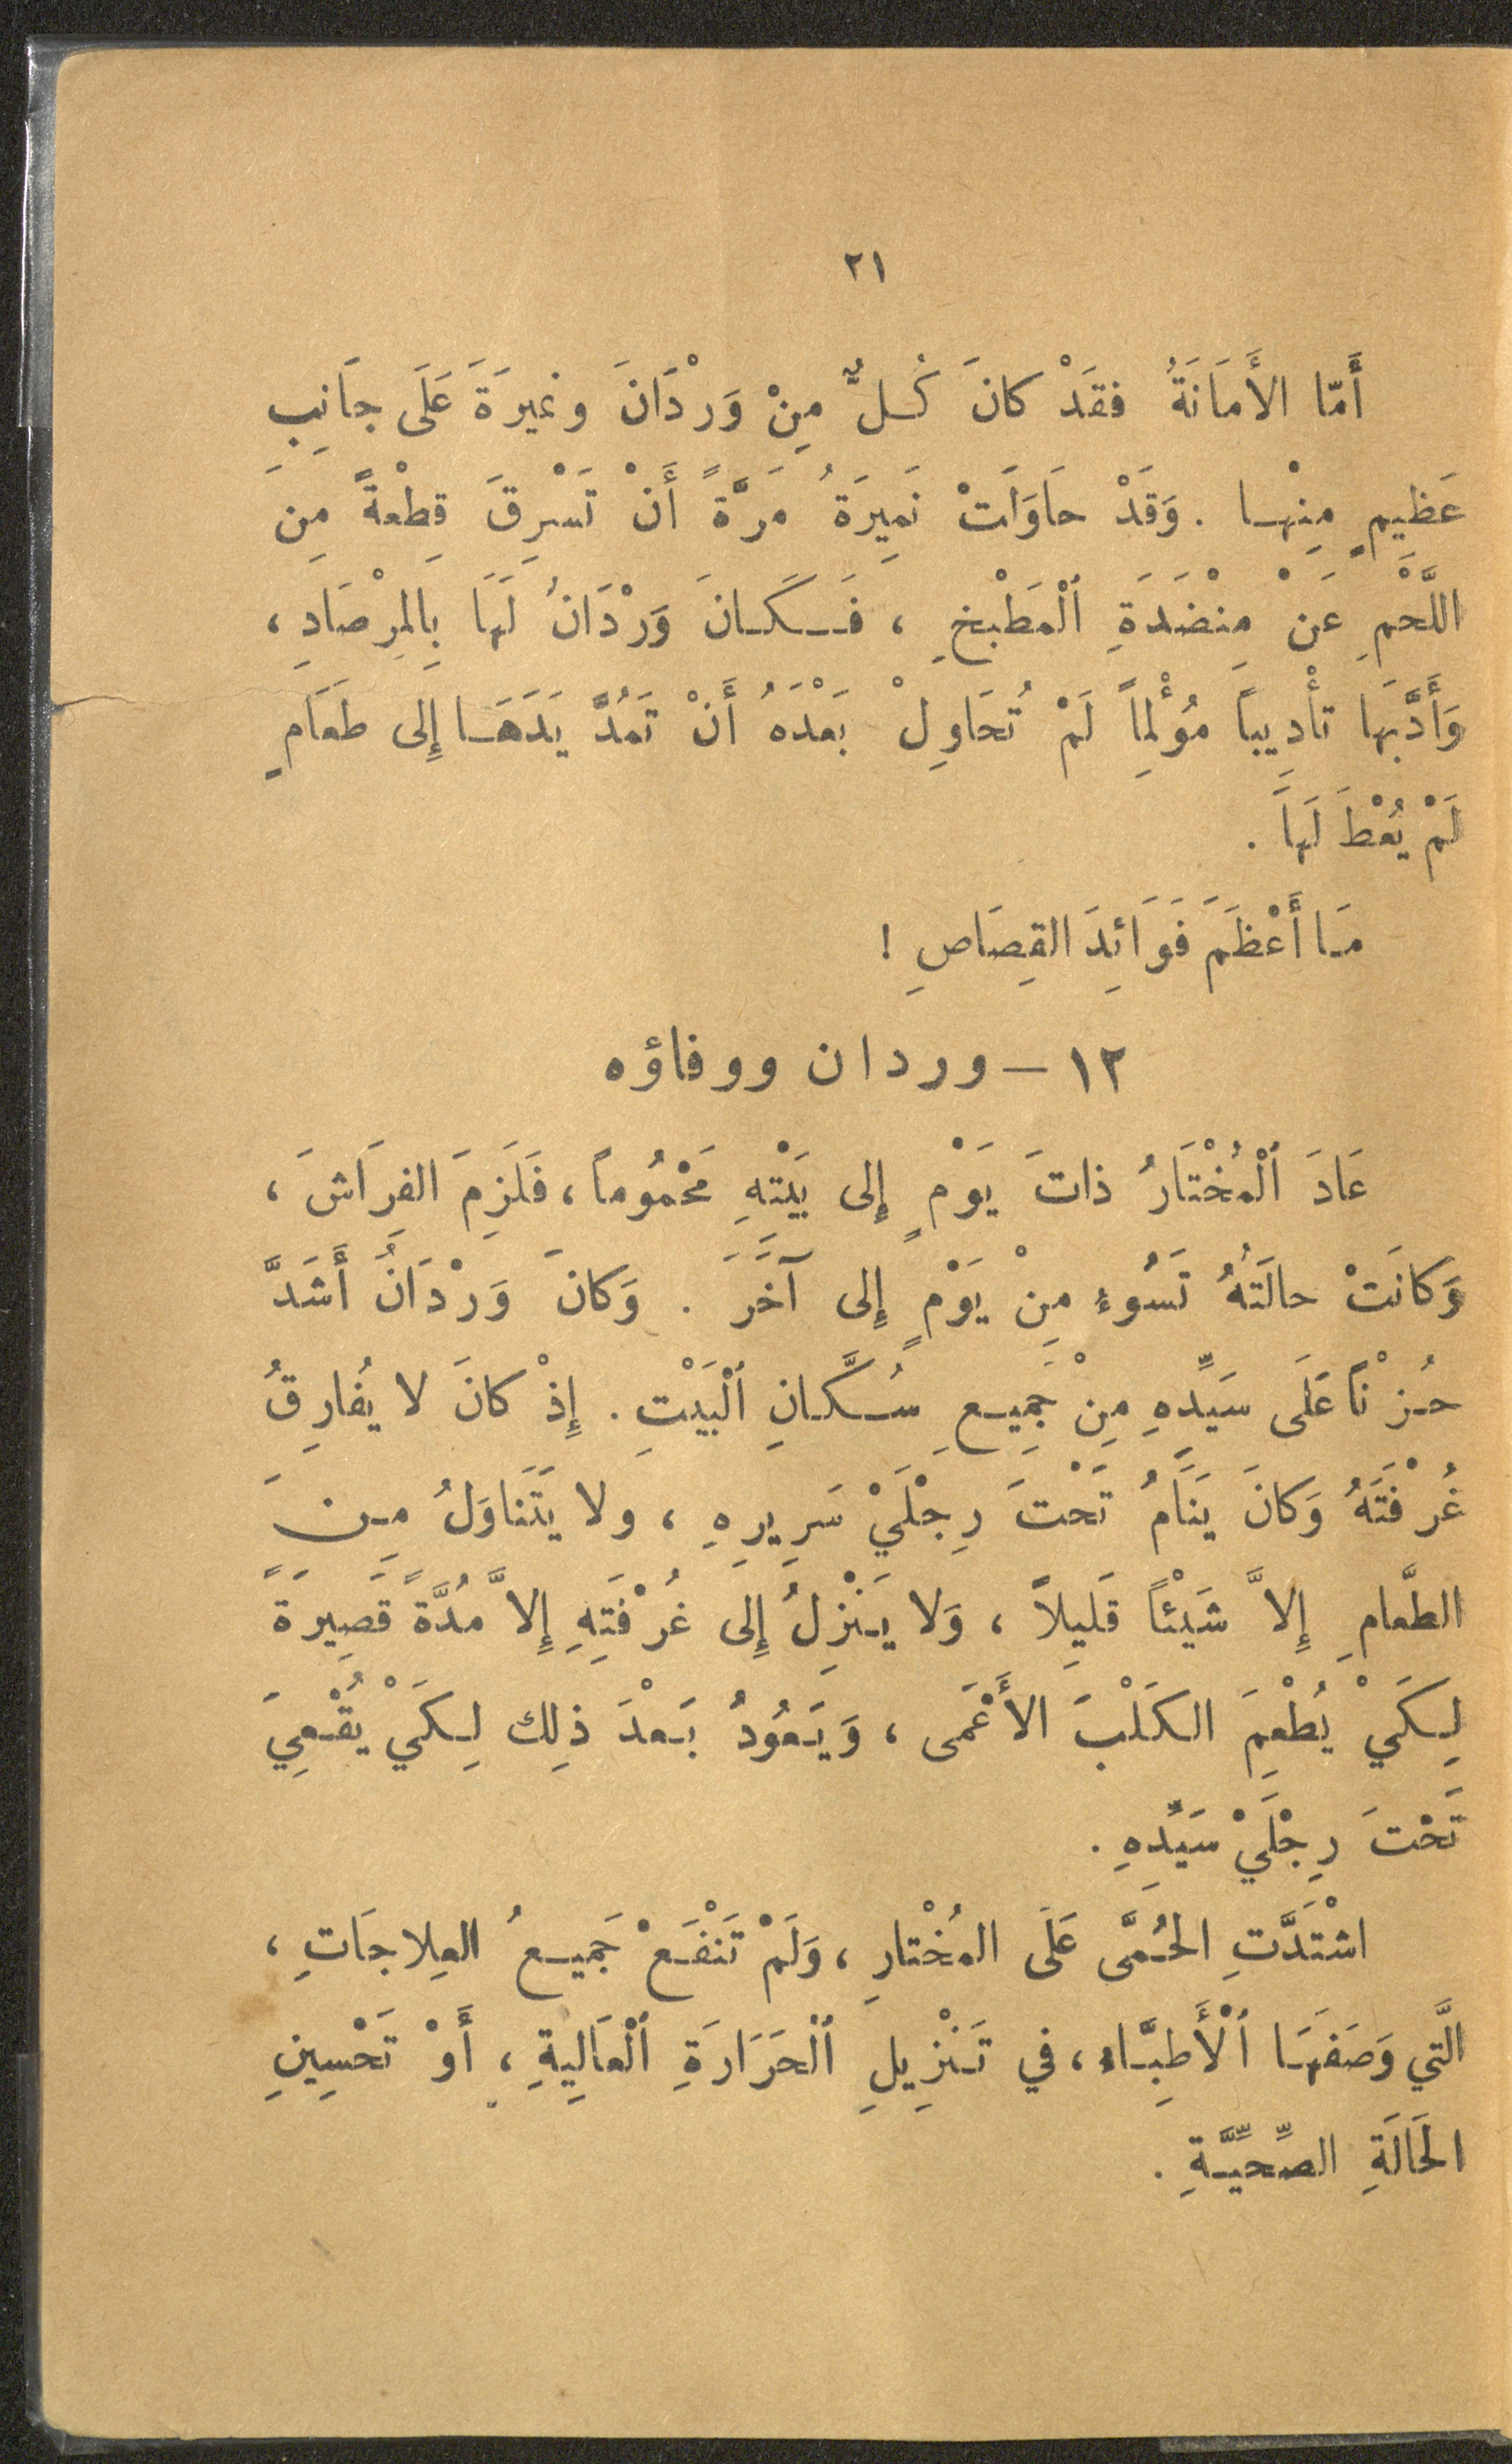 ٢١
أَمّا الأَمَانَةُ فقَدْ كانَ كُلٌّ مِنْ وَرْدَانَ ونميرَةَ عَلَى جَانِب
عَظيمٍ مِنْها . وَقَدْ حَاوَلَتْ نَمِيرَةُ مَرَّةً أَنْ تَسْرِقَ قِطْعةً مِنَ
اللَّحْمِ عَنْ مِنْضَدَةِ ٱلْمَطْبْخِ ، فَكَانَ وَرْدَانُ لَهَا بِالمِرْصَادِ ،
وَأَدَّبَهَا تأْدِيباً مُؤْلِماً لَمْ تُحَاوِلْ بَعْدَهُ أَنْ تَمُدَّ يَدَهَا إِلى طَعَامٍ
لَمْ يُعْطَ لَهَا .
مَا أَعْظَمَ فَوَائِدَ القِصَاصِ !
١٢ – وردان ووفاؤه
عَادَ ٱلْمُخْتَارُ ذاتَ يَوْمٍ إِلى بَيْتِهِ مَحْمُوماً ، فَلَزِمَ الفِرَاشَ ،
وَكانَتْ حالَتُهُ تَسُوءُ مِنْ يَوْمٍ إِلى آخَرَ . وَكانَ وَرْدَانُ أَشَدَّ
حُزْناً عَلَى سَيِّدِهِ مِنْ جَمِيعِ سُكَّانِ ٱلْبَيْتِ . إِذْ كانَ لا يُفارِقُ
غُرْفَتَهُ وَكانَ يَنَامُ تَحْتَ رِجْلَيْ سَرِيرِهِ ، ولا يَتَناوَلُ مِنَ
الطَّعامِ إِلاَّ شَيْئاً قَلِيلاً ، وَلا يَنْزِلُ إِلى غُرْفَتِهِ إِلاَّ مُدَّةً قَصِيرَةً
لِكَيْ يُطْعِمَ الكَلْبَ الأَعْمَى ، وَيَعُودُ بَعْدَ ذلِك لِكَيْ يُقْعِيَ
تَحْتَ رِجْلَيْ سَيِّدِهِ .
اشْتَدَّتِ الحُمَّى عَلَى المُخْتارِ ، وَلَمْ تَنْفَعْ جَمِيعُ العِلاجَاتِ ،
الَّتي وَصَفَهَا ٱلْأَطِبَّاء ، في تَنْزِيلِ ٱلْحَرَارَةِ ٱلْعَالِيةِ ، أَوْ تَحْسِينِ
الحَالَةِ الصِّحِّيَّةِ .